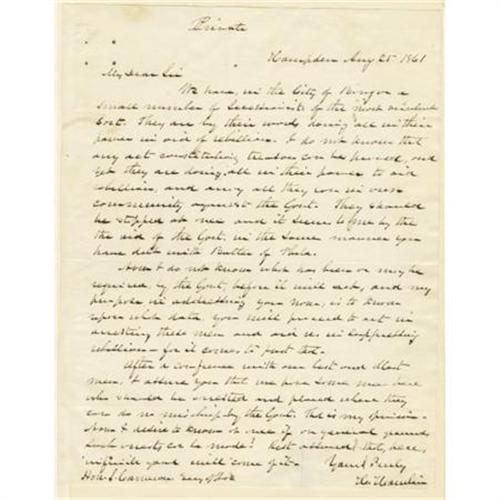 Private
Hampden Aug 25 1861
My Dear Sir
We have, in the City of Bangor a
small number of Secessionists of the most malignant
sort. They are by their words doing all in their
power in aid of rebellion. I do not know that
any act constituting treason can be proved, and
yet they are doing all in their power to aid
rebellion, and array all they can in our
community against the Govt. They should
be stopped at once and it seems to me by the
the aid of the Govt. in the same manner you
have dealt with Butler of Phila.
Now I do not know what has been or may be
required, by the Govt, before it will act, and my
purpose in addressing you now, is to know
upon which data you will proceed to act in
arresting these men and aid us in suppressing
rebellion - for it comes to just that.
After a conference with our best and
men, I assure you that we have some men here
who should be arrested and placed where they
can do no mischief by the Govt. That is my opinion.
Now I desire to know at once if on general grounds
such arrests can be made? Rest assured, that, here,
good will come of it.
Yours Truly
H. Hamlin
Hon. S. Cameron Secy of War